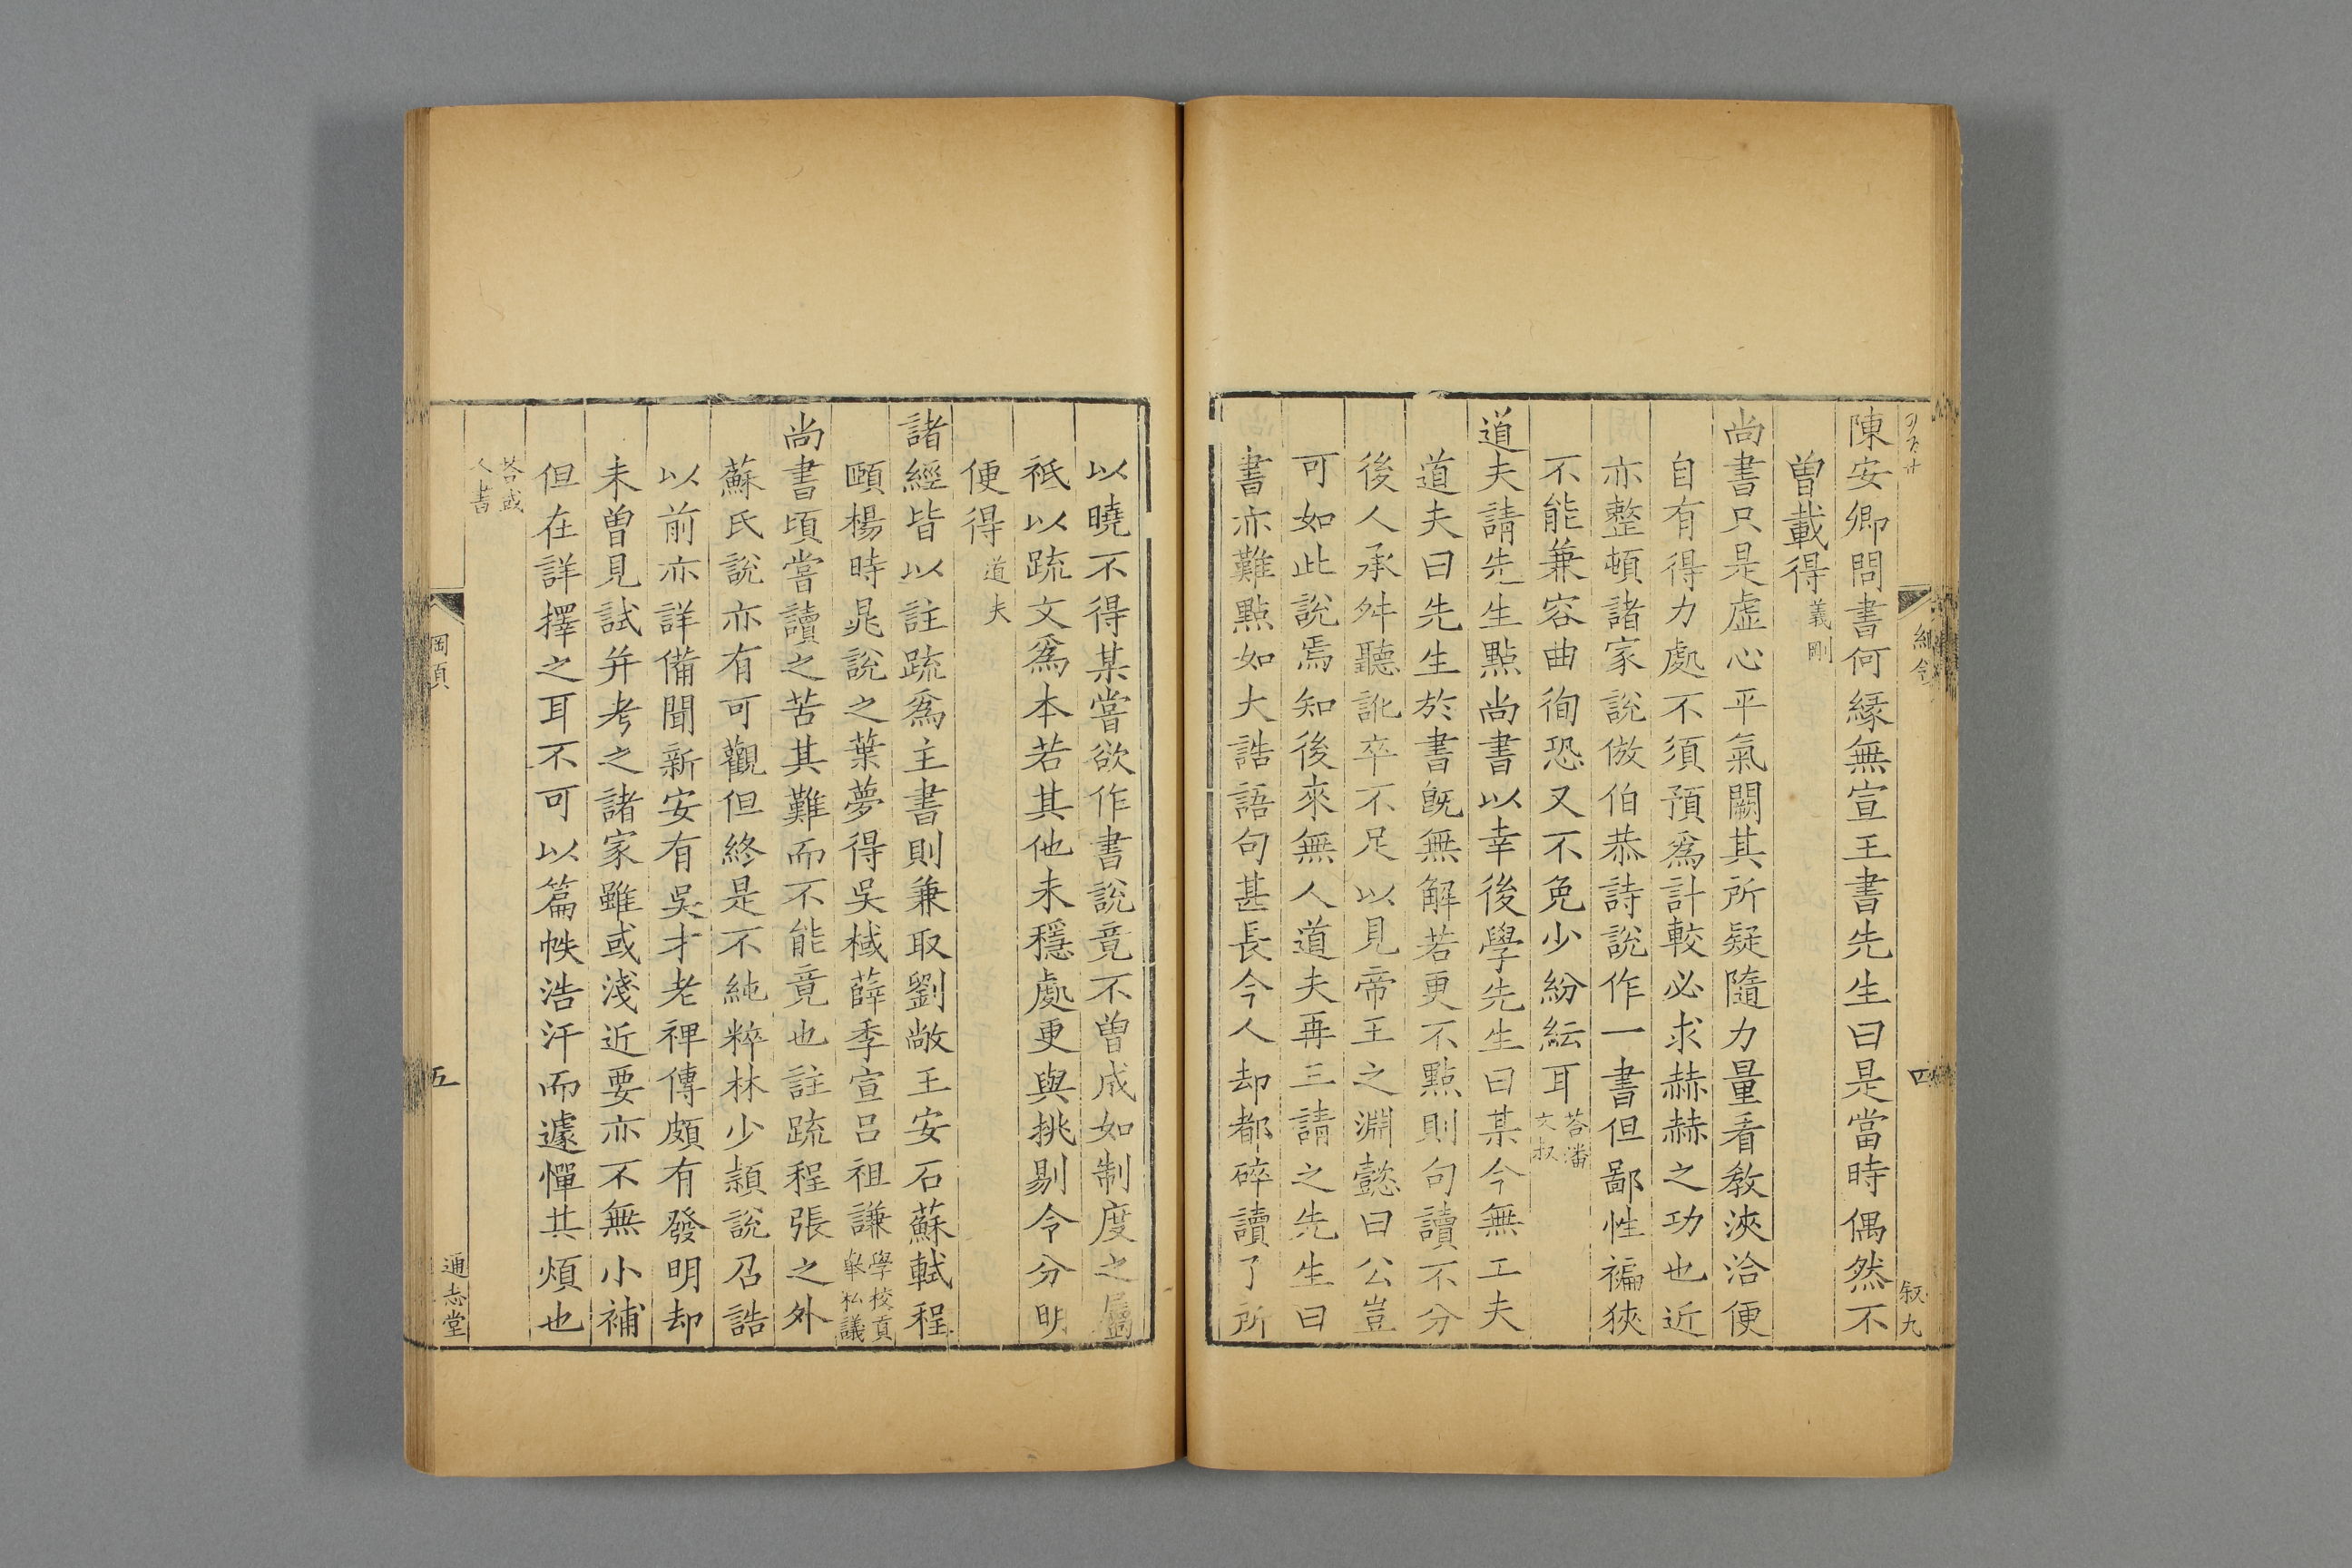 陳安卿問書何縁無宣王書先生曰是當時偶然不
曽載得義剛
尚書只是虛心平氣闕其所疑隨力量看教浹洽便
自有得力處不須預爲計較必求赫赫之功也近
亦整頓諸家說倣伯恭詩說作一書但鄙性褊狹
不能兼容曲徇恐又不免少紛紜耳荅潘文叔
道夫請先生點尚書以幸後學先生曰某今無工夫
道夫曰先生於書旣無解若更不點則句讀不分
後人承舛聽訛卒不足以見帝王之淵懿曰公豈
可如此說焉知後來無人道夫再三請之先生曰
書亦難點如大誥語句甚長今人却都碎讀了所
四
叙九
以曉不得某嘗欲作書說竟不曽成如制度之屬
祇以疏文爲本若其他未穩處更與挑剔令分明
便得道夫
諸經皆以註疏爲主書則兼取劉敞王安石蘇軾程
頤楊時晁說之葉夢得吳棫薛季宣吕祖謙學校貢舉私議
尚書頃嘗讀之苦其難而不能竟也註疏程張之外
蘇氏說亦有可觀但終是不純粹林少穎說召誥
以前亦詳備聞新安有吳才老裨傳頗有發明却
未曽見試并考之諸家雖或淺近要亦不無小補
但在詳擇之耳不可以篇帙浩汗而遽憚其煩也
荅或人書
五
通志堂